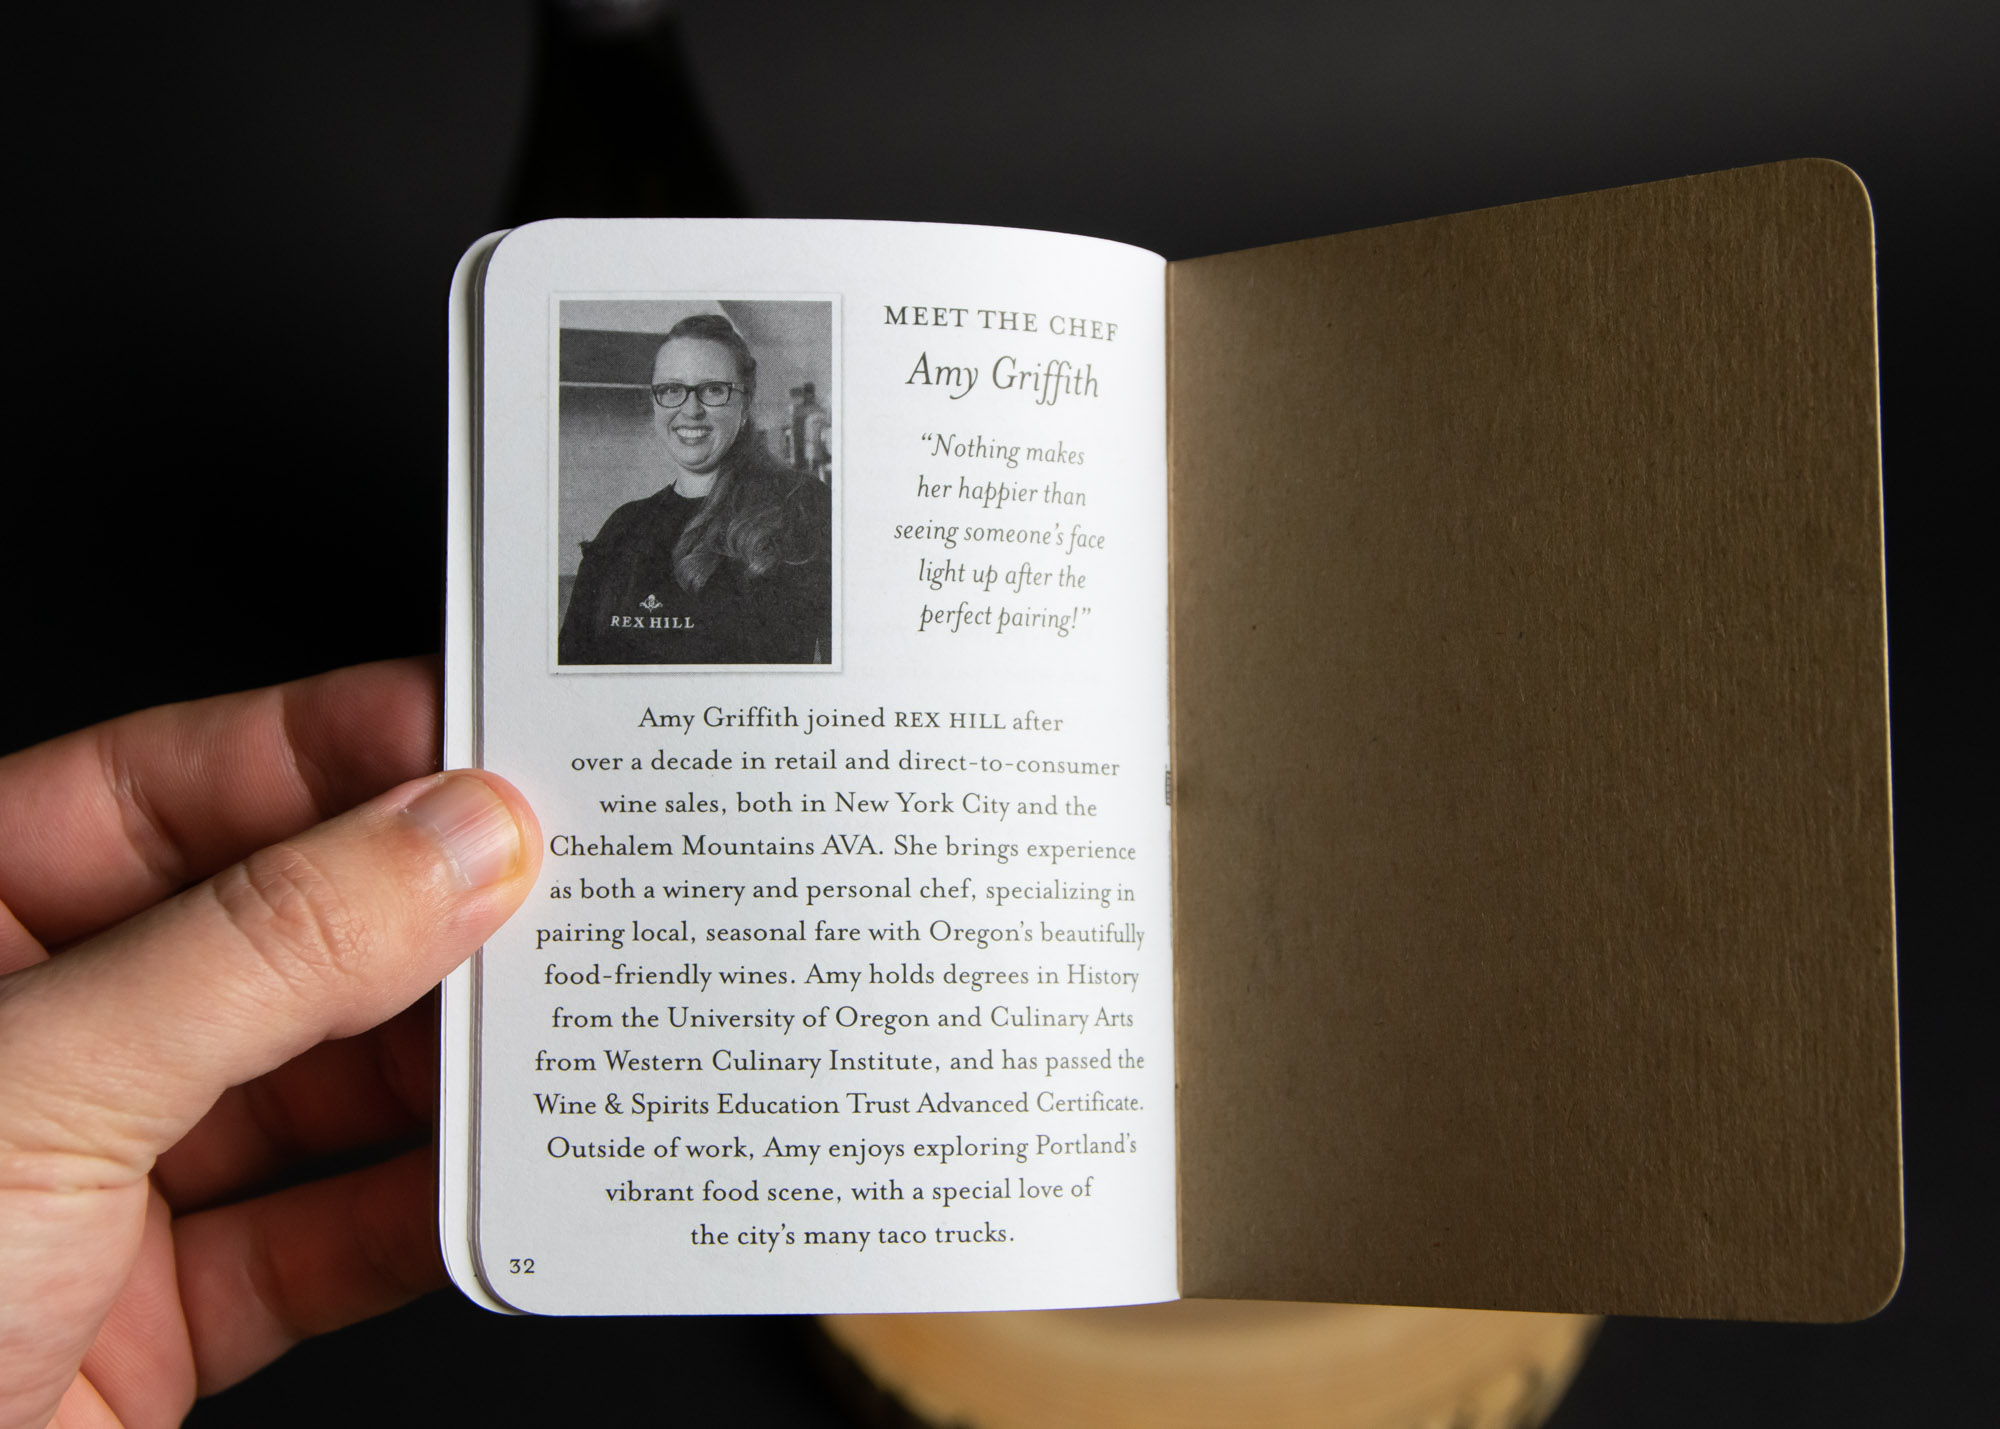 MEET THE CHEF
Amy Griffith
“Nothing makes
her happier than
seeing someone’s face
light up after the
perfect pairing!”
REX HILL
Amy Griffith joined REX HILL after
over a decade in retail and direct-to-consumer
wine sales, both in New York City and the
Chehalem Mountains AVA. She brings experience
as both a winery and personal chef, specializing in
pairing local, seasonal fare with Oregon’s beautifully
food-friendly wines. Amy holds degrees in History
from the University of Oregon and Culinary Arts
from Western Culinary Institute, and has passed the
Wine & Spirits Education Trust Advanced Certificate.
Outside of work, Amy enjoys exploring Portland’s
vibrant food scene, with a special love of
the city’s many taco trucks.
32